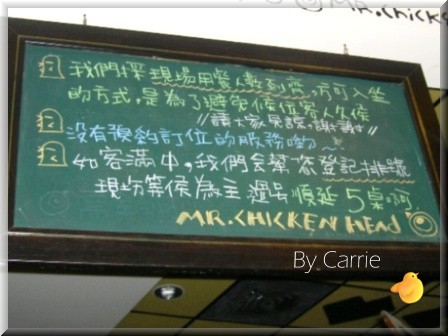 MR.Chicke
我們採現場用餐人數到齊,方可入坐
的方式,是為了避免候位客人久候
"請大家見諒,謝謝!!"
沒有預約訂位的服務喲~
如客滿中,我們會幫您登記排號
現場等侯為主 過號順延5桌啊.
MR.CHICKEN HEAD
By Carrie